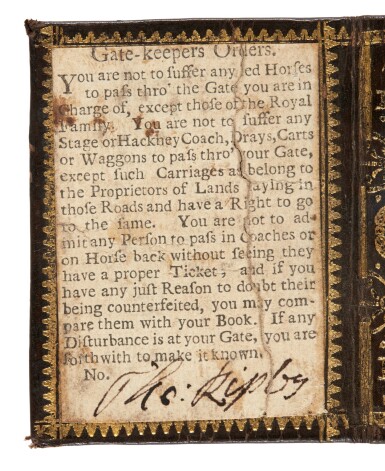 Gate-keepers Orders.
You are not to suffer any led Horses
to paſs thro' the Gate you are in
Charge of, except thoſe of the Royal
Family. You are not to ſuffer any
Stage or Hackney Coach, Drays, Carts
or Waggons to paſs thro' your Gate,
except ſuch Carriages as belong to
the Proprietors of Lands laying in
thoſe Roads and have a Right to go
to the ſame. You are not to ad-
mit any Perſon to paſs in Coaches or
on Horſe back without ſeeing they
have a proper Ticket, and if you
have any juſt Reaſon to doubt their
being counterfeited, you may com-
pare them with your Book. If any
Diſturbance is at your Gate, you are
forthwith to make it known.
No.
Tho: Ripley